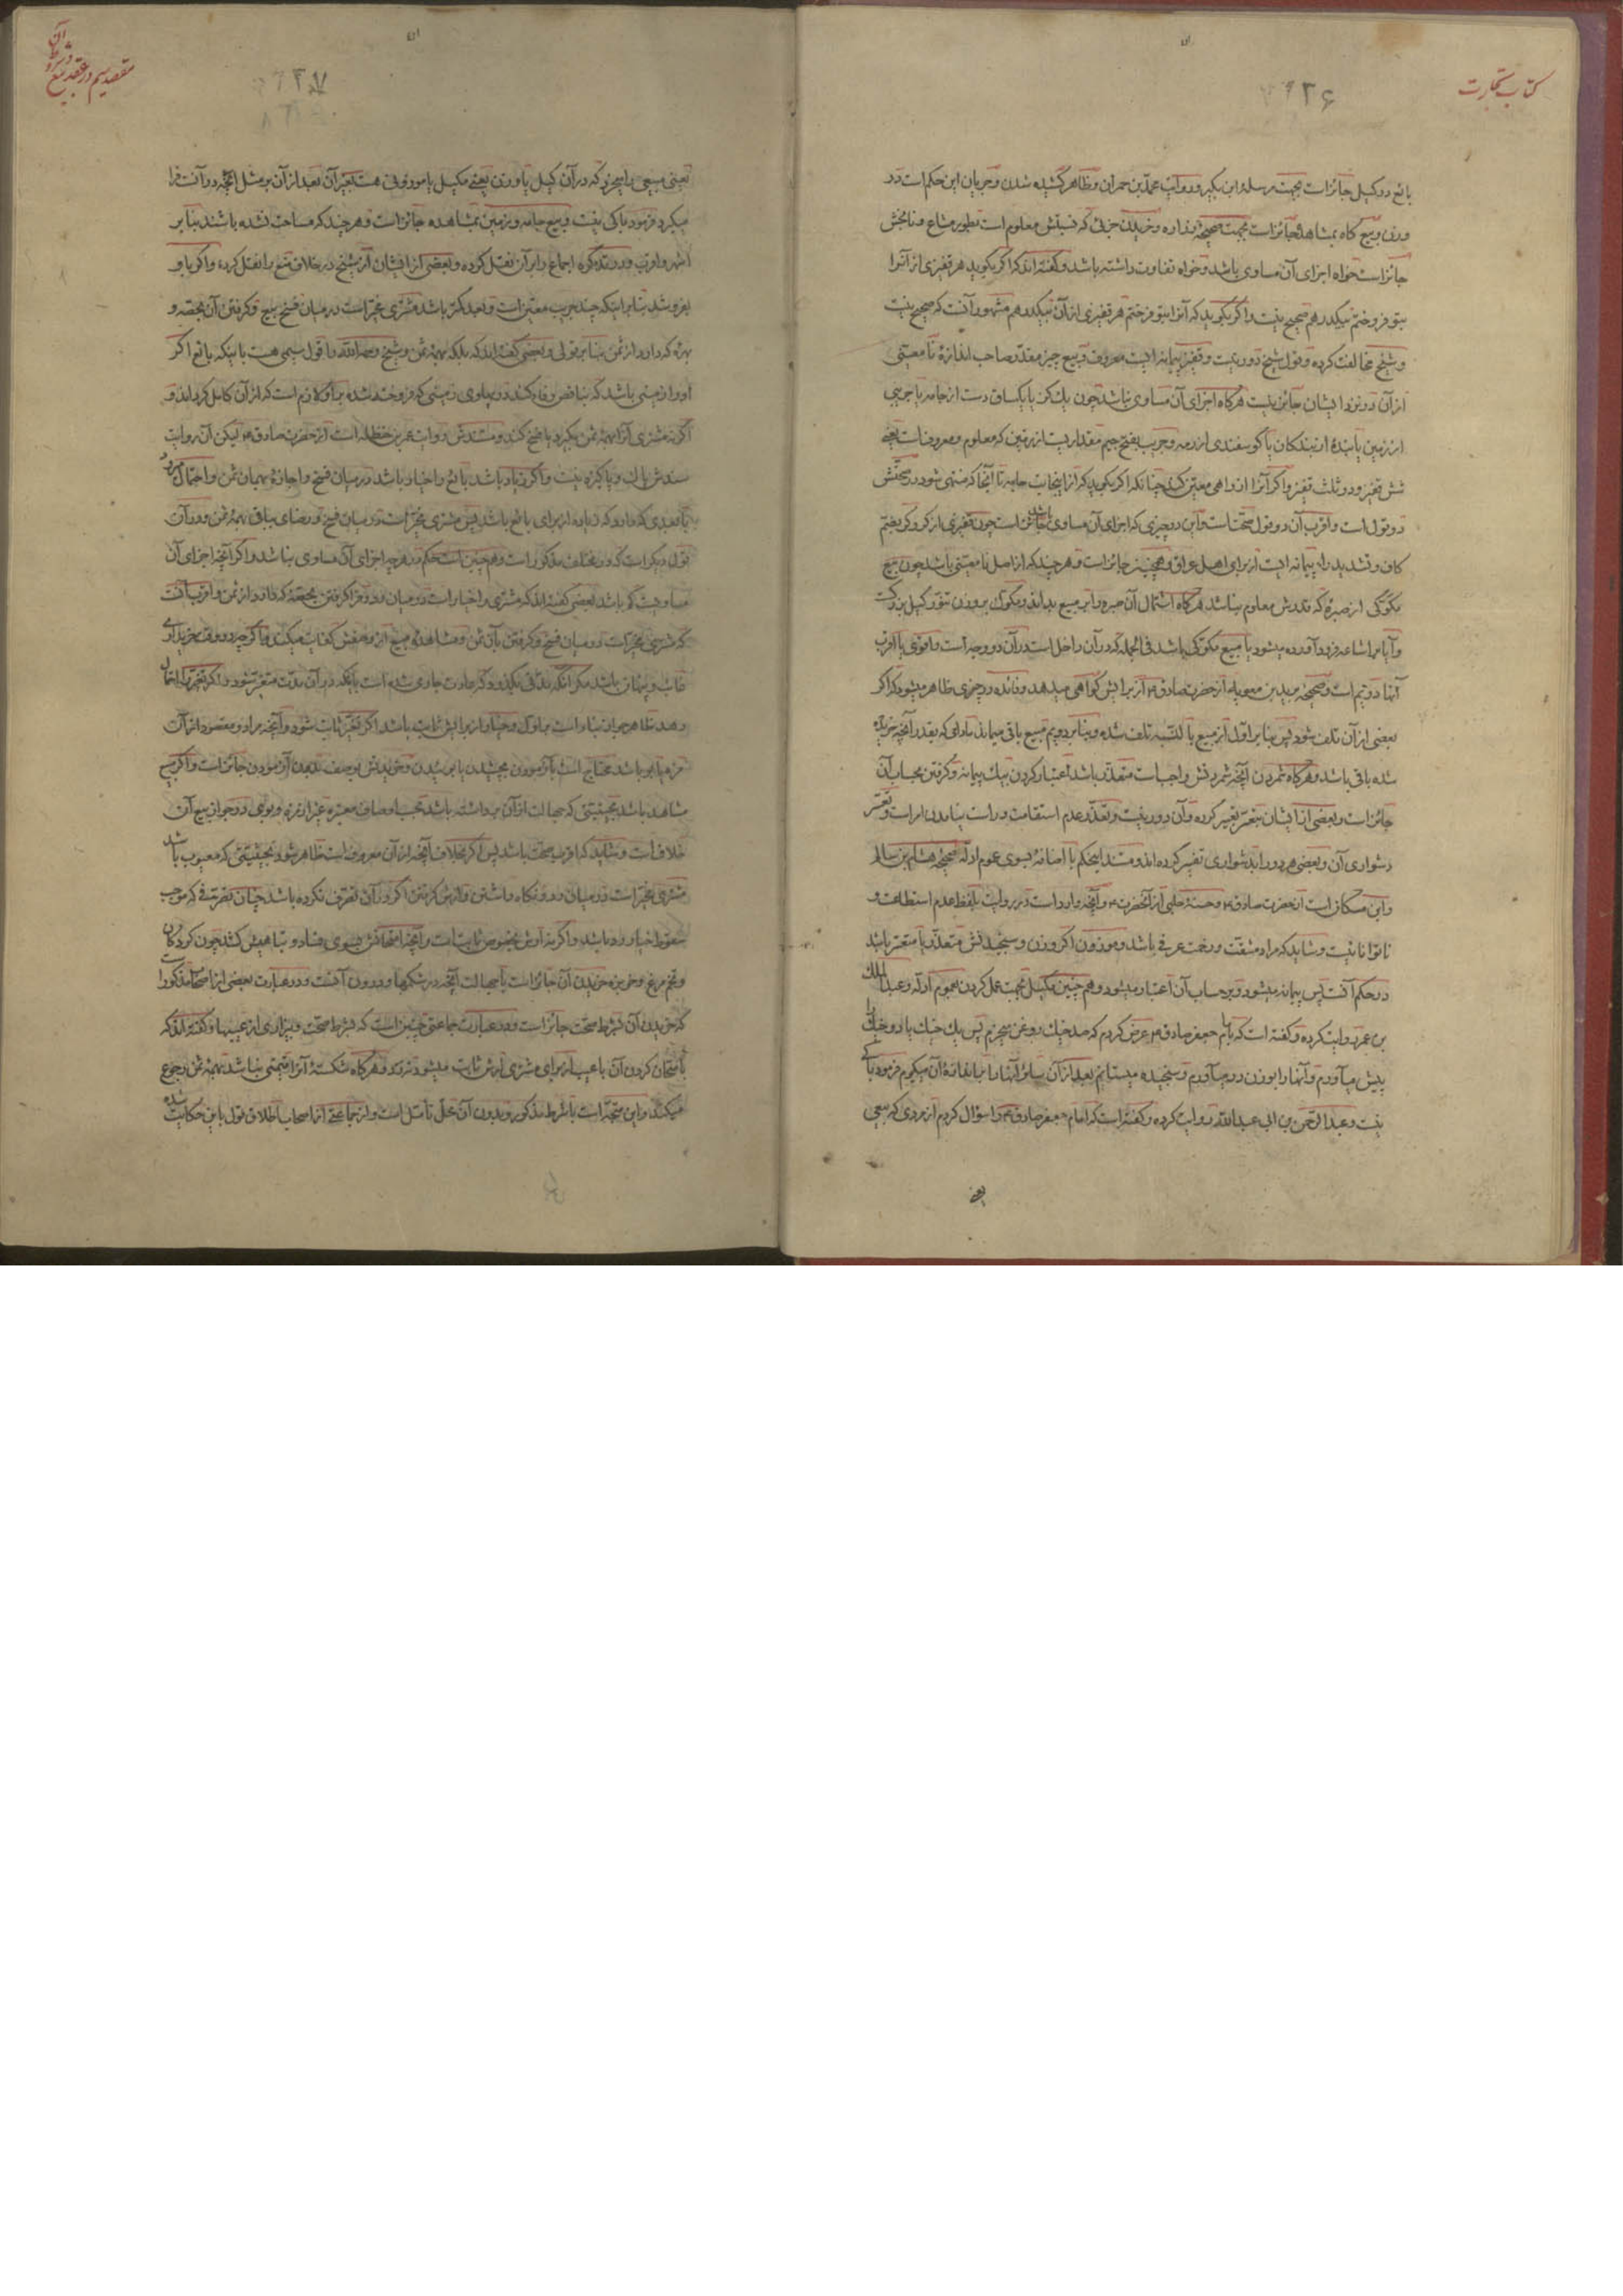 کتاب تجارت
۲۳۶
بائع در کیل جائز است بجهت مرسله ابن بکیر و روایت محمد بن حمران و ظاهر گشیده شدن و جریان این حکم است در
وزن و بیع کاه بمشاهده جائز است بجهت صحیحه زراره و خریدن جزئی که نسبتش معلوم است بطور مشاع و نابخش
جائز است خواه اجزای آن مساوی باشد و خواه تفاوت داشته باشد و گفته‌اند که اگر بگوید هر قفیزی از آنرا
بتو فروختم بیکدرهم صحیح نیست و اگر بگوید که آنرا بتو فروختم هر قفیزی از آن بیکدرهم مشهور آنست که صحیح نیست
و شیخ مخالفت کرده و قول شیخ دور نیست و قفیز پیمانه ایست معروف و بیع چیز مقدر صاحب اندازهٔ نامعینی
از آن در نزد ایشان جائز نیست هرگاه اجزای آن مساوی نباشد چون یک گز یا یکساق دست از جامه یا جریبی
از زمین یا بندهٔ از بندکان یا گوسفندی از رمه و جریب بفتح جیم مقداریست از زمین که معلوم و معروفست یعنی
شش قفیز و دو ثلث قفیز و اگر آنرا از راهی معین کند چنانکه اگر بگوید که از اینجانب جامه تا آنجا که منتهی شود در صحتش
دو قول است و اقرب آن دو قول صحتست و این در چیزی که اجزای آن مساوی باشد جائز است چون قفیزی از کر و کر بضم
کاف و تشدید را پیمانه ایست از برای اهل عراق و همچنین جائز است و هر چند که از اصل نامعینی باشد چون بیع
مکوکی از صبرهٔ که قدرش معلوم نباشد هرگاه اشتمال آن صبره را بر مبیع بداند و مکوک بر وزن تنور کیل بزرگست
و آیا بر اشاعه فرود آورده میشود یا مبیع مکوکی باشد فی الجمله که در آن داخل است در آن دو وجه است و اقوی یا اقرب
آنها دویم است و صحیحه برید بن معویه از حضرت صادق ع از برایش گواهی میدهد و فائده در چیزی ظاهر میشود که اگر
بعضی از آن تلف شود پس بنا بر اول از مبیع بالنسبه تلف شده و بنا بر دویم مبیع باقی میماند مادامی که بقدر آنچه خریده
شده باقی باشد و هرگاه شمردن آنچه شمردنش واجبست متعذر باشد اعتبار کردن بیک پیمانه و گرفتن بحساب آن
جائز است و بعضی از ایشان بتعسر تعبیر کرده و آن دور نیست و تعذر عدم استقامت و راست نیامدن امر است و تعسر
دشواری آن و بعضی هر دو را بدشواری تفسیر کرده‌اند و مستند اینحکم با اضافه بسوی عموم ادله صحیحه هشام بن سالم
و ابن مسکان است از حضرت صادق ع و حسنهٔ حلبی از آنحضرت ع و آنچه وارد است در روایت بلفظ عدم استطاعت و
ناتوانائیست و شاید که مراد مشقت و زحمت عرفی باشد و موزون اگر وزن و سنجیدنش متعذر یا متعسر باشد
در حکم آنست پس پیمانه میشود و بر حساب آن اعتبار میشود و هم چنین مکیل بجهت عمل کردن بعموم ادله و عبد الملک
بن عمرو روایت کرده و گفته است که بامام جعفر صادق ع عرض کردم که صد خیک روغن میخرم پس یک خیک یا دو خیک را
پیش می‌آورم و آنها را بوزن در می‌آورم و سنجیده میستانم بعد از آن سائر آنها را باندازهٔ آن میگیرم فرمود باکی
نیست و عبد الرحمن بن ابی عبد الله روایت کرده و گفته است که امام جعفر صادق ع را سؤال کردم از مردی که بیعی
یعنی
مقصد سیم در عقد بیع
و شروط آن
۲۳۷
یعنی مبیعی را میخرد که در آن کیل یا وزن یعنی مکیل یا موزونی هست بغیر آن بعد از آن بر مثل آنچه در آنست فرا
میگیرد فرمود باکی نیست و بیع جامه و زمین بمشاهده جائز است و هر چند که مساحت نشده باشند بنا بر
اشهر و اقرب و در تذکره اجماع را بر آن نقل کرده و بعضی از ایشان از شیخ در خلاف منع را نقل کرده و اگر باو
بفروشد بنا بر اینکه چند جریب معین است و بعد کمتر باشد مشتری مخیر است در میان فسخ بیع و گرفتن آن بحصه و
بهره که دارد از ثمن بنا بر قولی و بعضی گفته‌اند که بلکه بهمهٔ ثمن و شیخ رحمه الله را قول سیمی هست باینکه بائع اگر
او را زمینی باشد که بناقص وفا کند در پهلوی زمینی که فروخته شده بر او لازم است که از آن کامل گرداند و
اگر نه مشتری آنرا بهمهٔ ثمن بگیرد یا فسخ کند و مستندش روایت عمر بن حنظله است از حضرت صادق ع لیکن آن روایت
سندش پاک و پاکیزه نیست و اگر زیاد باشد بائع را خیار باشد در میان فسخ و اجازه بهمان ثمن و احتمال میرود
قول دیگر است که در مختلف مذکور است و هم چنین است حکم در هر چه اجزای آن مساوی نباشد و اگر آنچه اجزای آن
مساویست کم باشد بعضی گفته‌اند که مشتری را خیار است در میان رد و فرا گرفتن بحصهٔ که دارد از ثمن و اقرب آنست
که مشتری مخیر است در میان فسخ و گرفتن بآن ثمن و مشاهدهٔ مبیع از وصفش کفایت میکند و اگر چه در وقت خریداری
غائب و پنهان باشد مگر آنکه مدتی بگذرد که عادت جاری شده است باینکه در آن مدت متغیر شود و اگر تغیر را احتمال
دهد ظاهر جواز بناء است بر اول و خیار از برایش ثابت باشد اگر تغیر ثابت شود و آنچه مراد و مقصود از آن
مزه یا بو باشد محتاج است بآزمودن بچشیدن یا بوئیدن و خریدنش بوصف بدون آزمودن جائز است و اگر مبیع
مشاهد باشد بحیثیتی که جهالت از آن برداشته باشد بحسب اوصاف معتبره غیر از مزه و بوی در جواز بیع آن
خلاف است و شاید که اقرب صحت باشد پس اگر بخلاف آنچه از آن معروف است ظاهر شود بحیثیتی که معیوب باشد
مشتری مخیر است در میان رد و نگاه داشتن و ارش گرفتن اگر در آن تصرف نکرده باشد چنان تصرفی که موجب
سقوط خیار رد باشد و اگر نه ارش بخصوص ثابت است و آنچه امتحانش بسوی فساد و تباهیش کشد چون گردکان
و تخم مرغ و خربزه خریدن آن جائز است با جهالت آنچه در شکمها و درون آنست و در عبارت بعضی از اصحاب مذکور است
که خریدن آن بشرط صحت جائز است و در عبارت جماعتی چنین است که بشرط صحت و بیزاری از عیبها و گفته‌اند که
بامتحان کردن آن با عیب از برای مشتری ارش ثابت میشود نه رد و هرگاه شکستهٔ آنرا قیمتی نباشد بهمهٔ ثمن رجوع
میکند و این متجه است با شرط مذکور و بدون آن محل تأمل است و از جماعتی از اصحاب اطلاق قول باین حکایت شده